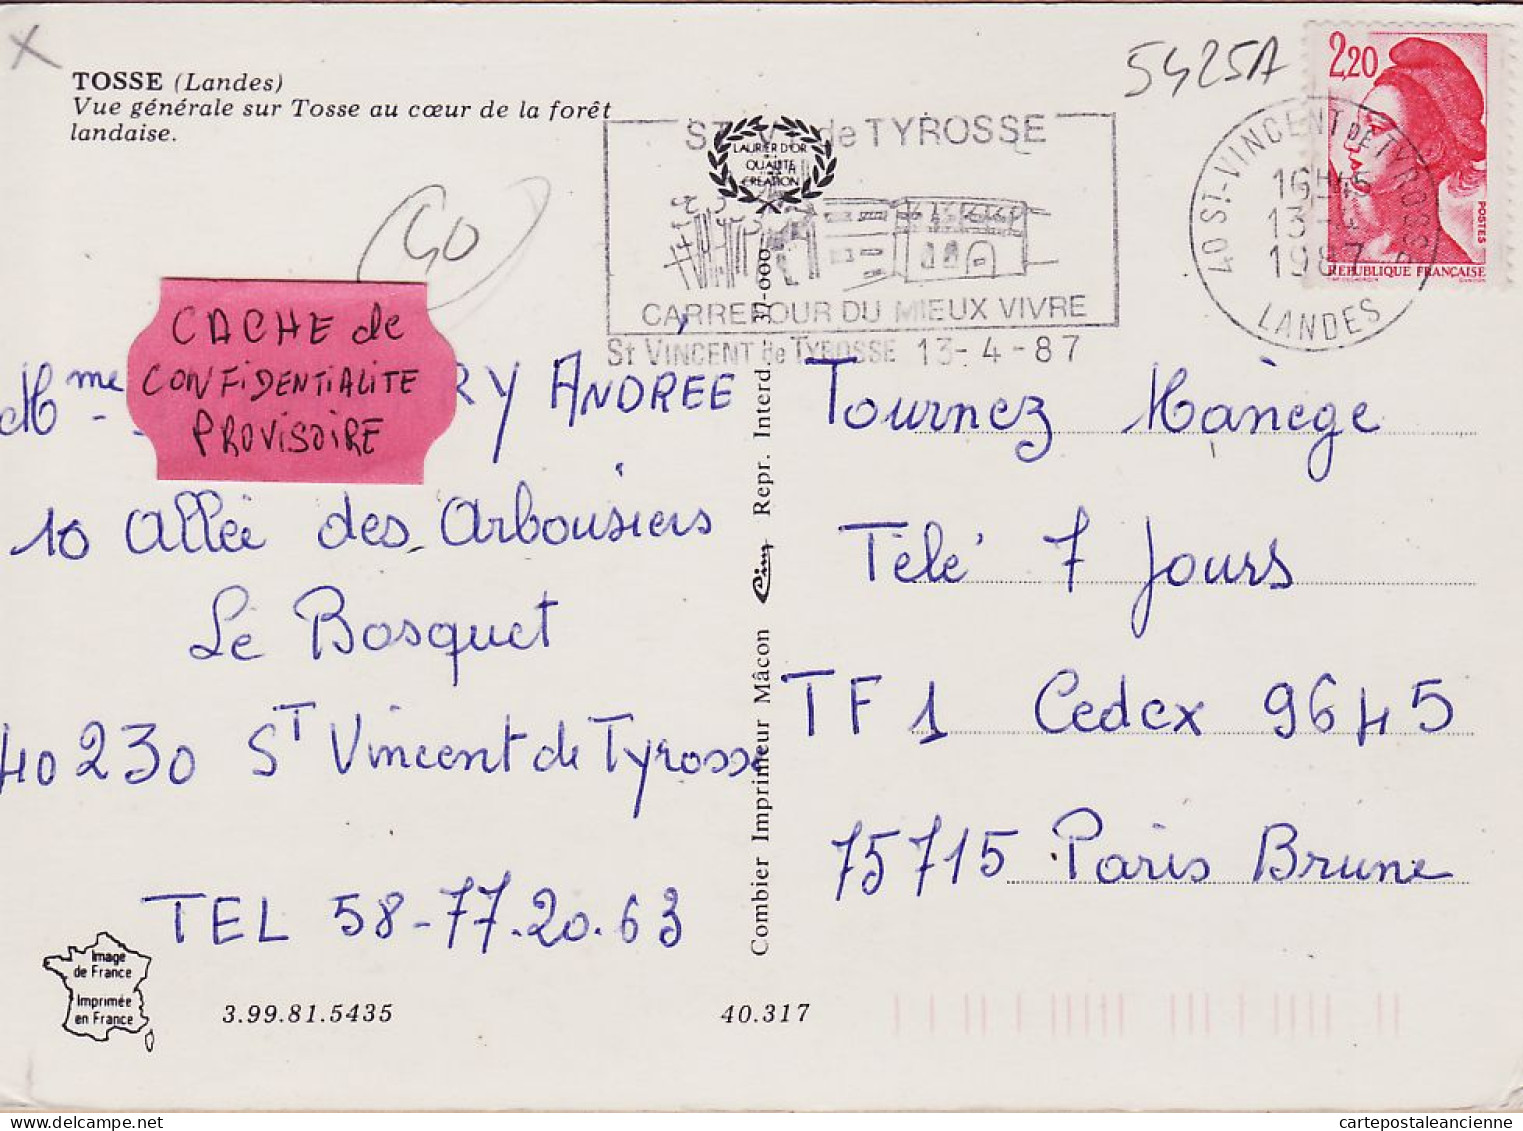 TOSSE (Landes)
Vue générale sur Tosse au cœur de la forêt
landaise.
5425A
2,20
POSTES
REPUBLIQUE FRANÇAISE
40 ST-VINCENT DE TYROSSE
16H45
13-4
1987
LANDES
ST V de TYROSSE
LAURIER D'OR
QUALITÉ
CRÉATION
CARREFOUR DU MIEUX VIVRE
St VINCENT de TYROSSE 13-4-87
40
CACHE de
CONFIDENTIALITE
PROVISOIRE
Mme RY ANDRÉE
10 Allée des Arbousiers
Le Bosquet
40230 ST Vincent de Tyrosse
TEL 58-77.20.63
Combier Imprimeur Mâcon Cim Repr. Interd. 37-000
Tournez Manège
Télé 7 Jours
TF1 Cedex 9645
75715 Paris Brune
Image
de France
Imprimée
en France
3.99.81.5435
40.317
cartepostaleancienne.com